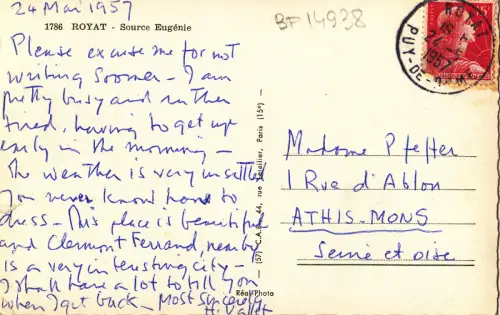 24 Mai 1957
1786 ROYAT - Source Eugénie
BF 14938
Please excuse me for not
writing sooner - I am
pretty busy and rather
tired, having to get up
early in the morning -
The weather is very unsettled
you never know how to
dress - This place is beautiful
and Clermont Ferrand, nearby
is a very interesting city -
I shall have a lot to tell you
when I get back - Most sincerely
H.
Réal-Photo
(57) C.A.P. 44, rue Paris (15e)
ROYAT
1957
PUY-DE-DOME
Madame Pfeffer
1 Rue d'Ablon
ATHIS-MONS
Seine et oise